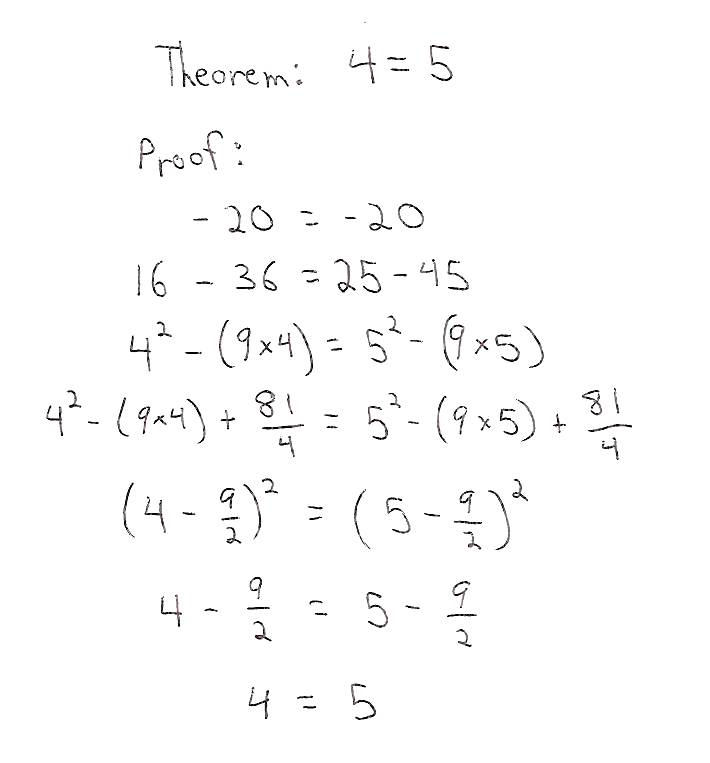 Theorem: 4 = 5
Proof:
-20 = -20
16 - 36 = 25 - 45
4² - (9×4) = 5² - (9×5)
4² - (9×4) + 81/4 = 5² - (9×5) + 81/4
(4 - 9/2)² = (5 - 9/2)²
4 - 9/2 = 5 - 9/2
4 = 5